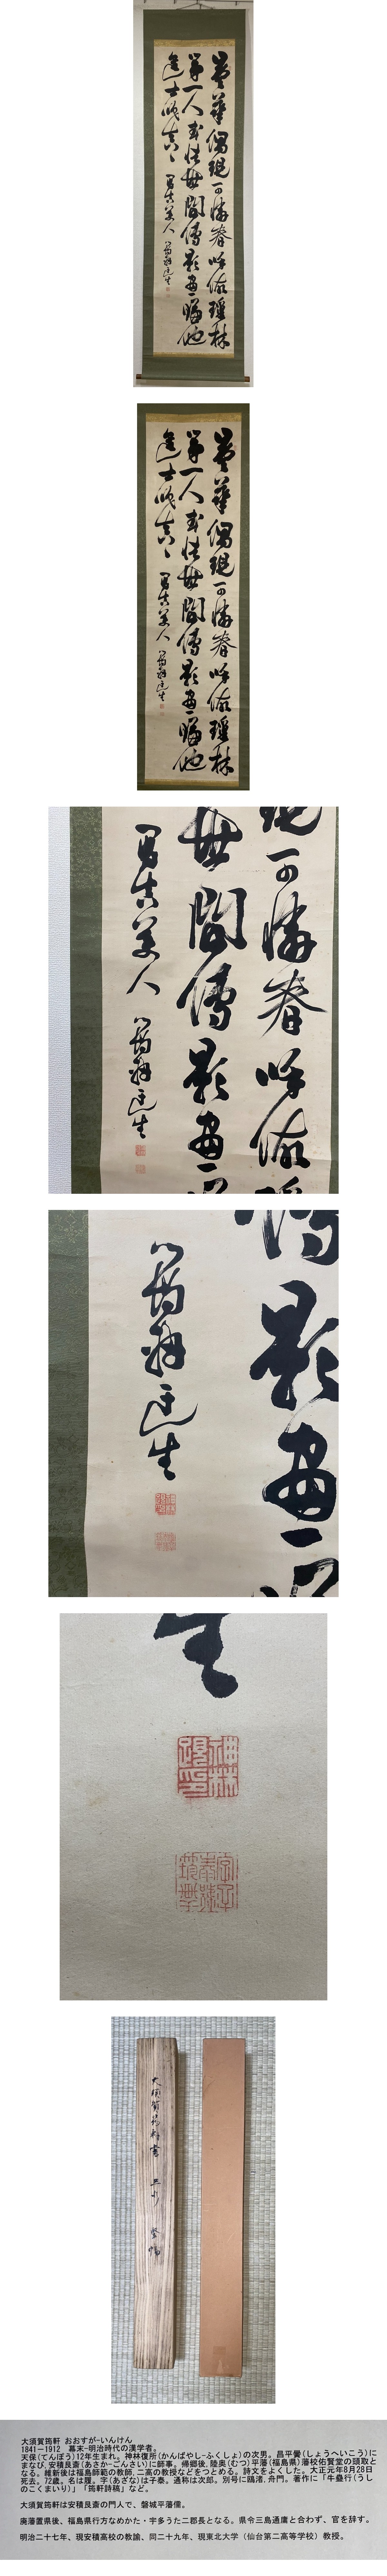 曇華偶現可憐春呼做瑶林
第一人世間傳影畫一幅他
進士真々
美人
筠軒迂生
神林
履印
大須賀筠軒書 三行 竪幅
大須賀筠軒 おおすが-いんけん
1841－1912 幕末-明治時代の漢学者。
天保(てんぽう)12年生まれ。神林復所(かんばやし-ふくしょ)の次男。昌平黌(しょうへいこう)に
まなび,安積艮斎(あさか-ごんさい)に師事。帰郷後,陸奥(むつ)平藩(福島県)藩校佑賢堂の頭取と
なる。維新後は福島師範の教師,二高の教授などをつとめる。詩文をよくした。大正元年8月28日
死去。72歳。名は履。字(あざな)は子泰。通称は次郎。別号に鴎渚,舟門。著作に「牛桑行(うし
のこくまいり)」「筠軒詩稿」など。
大須賀筠軒は安積艮斎の門人で、磐城平藩儒。
廃藩置県後、福島県行方なめかた・宇多うた二郡長となる。県令三島通庸と合わず、官を辞す。
明治二十七年、現安積高校の教諭、同二十九年、現東北大学（仙台第二高等学校）教授。